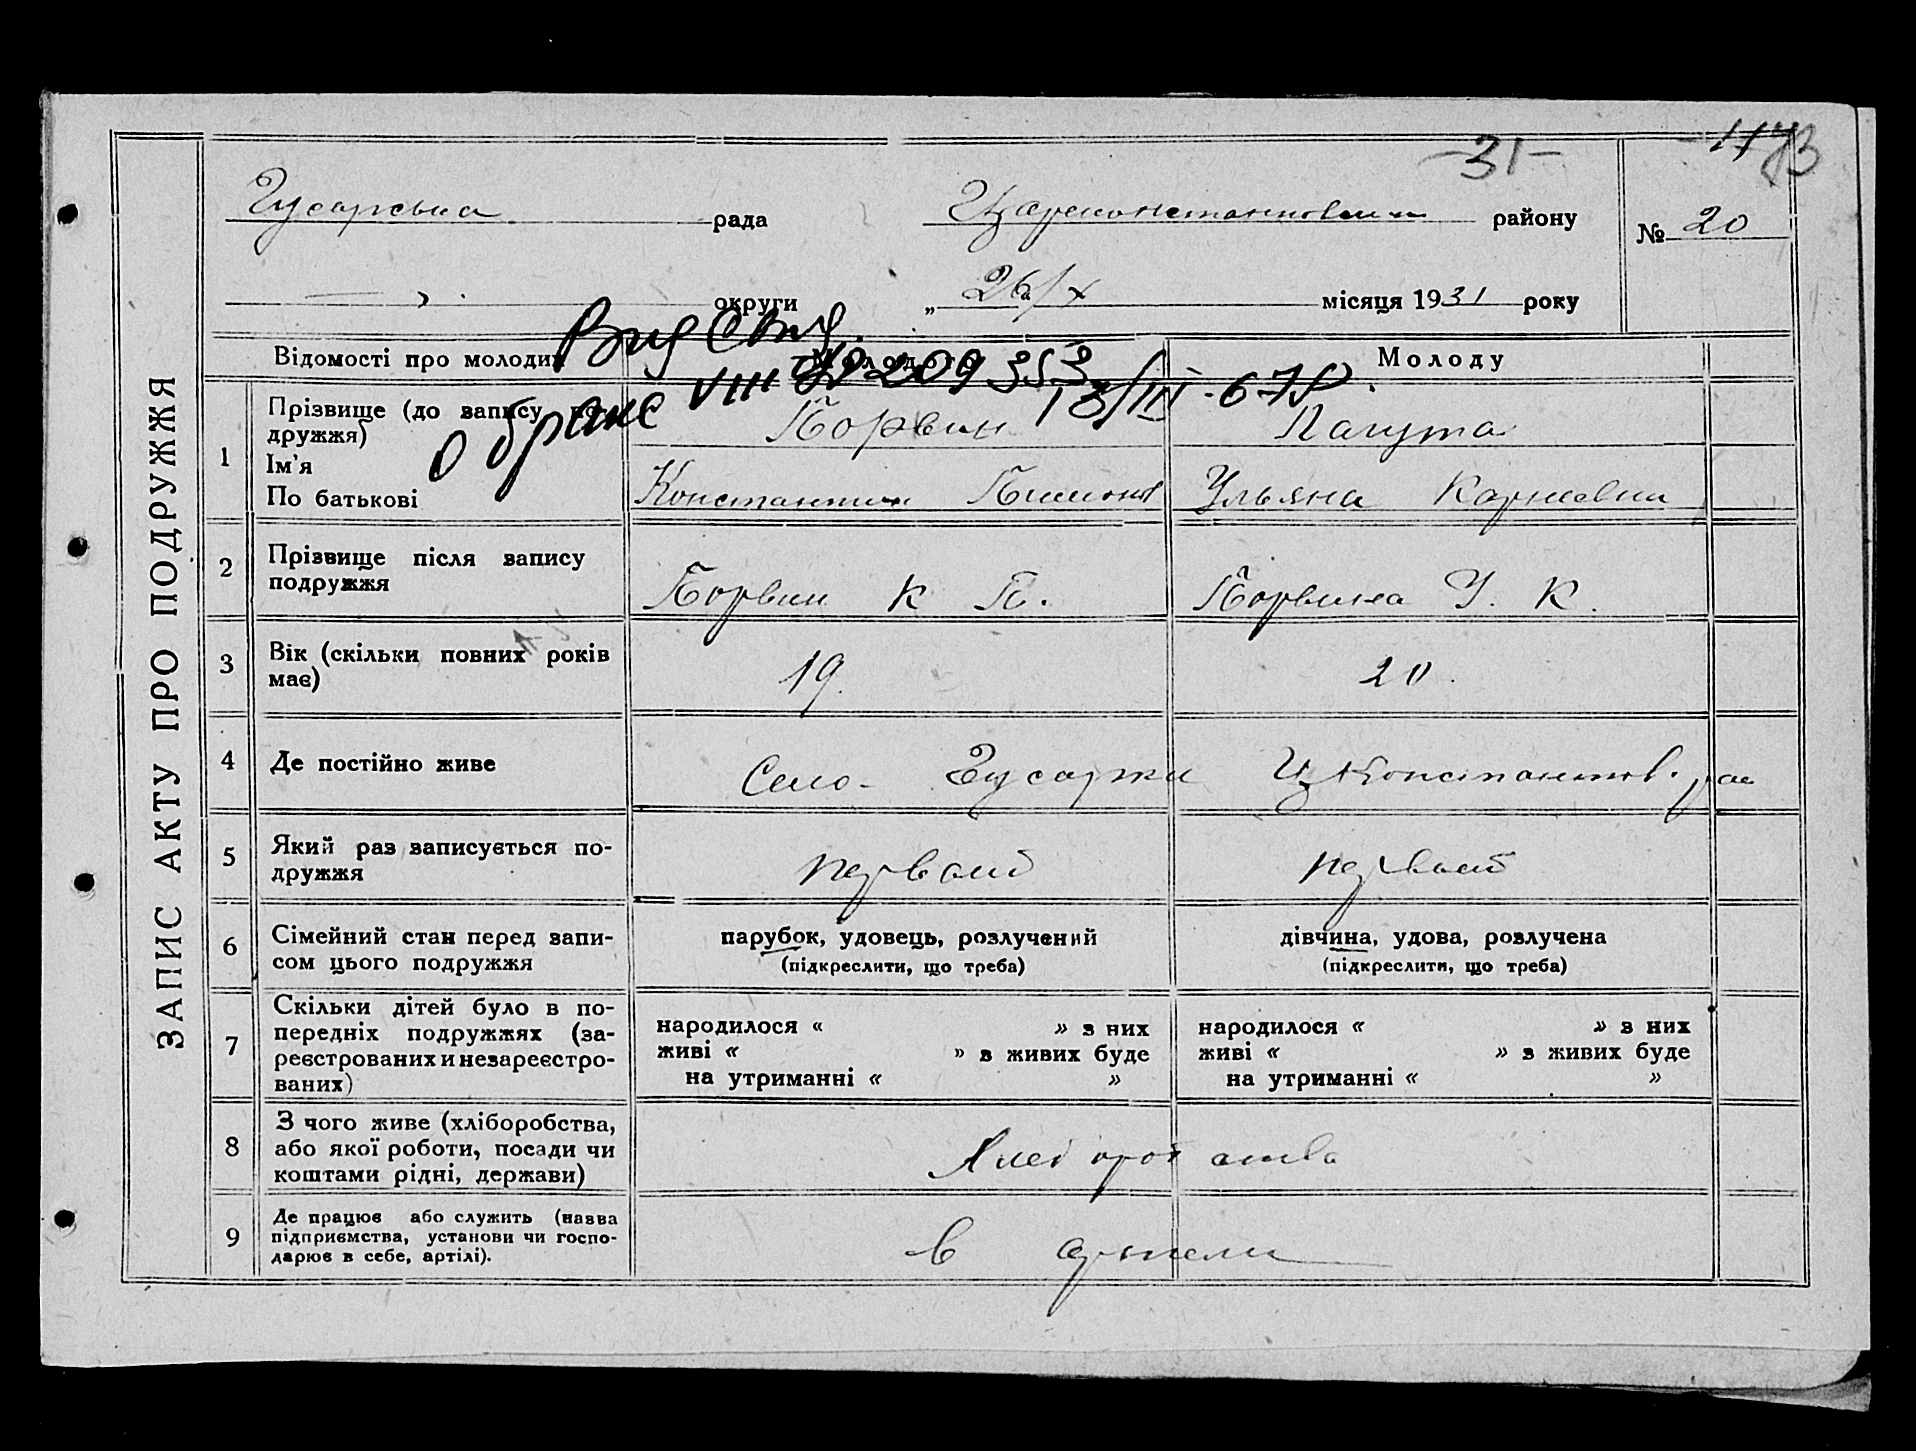 -31-
Гусарська рада
Царьконстантиновский району
№ 20
округи
„26/X місяця 1931 року
Выд свид.
о браке VIII
№ 209353
18/III-67г
ЗАПИС АКТУ ПРО ПОДРУЖЖЯ
Відомості про молодих
Молодого
Молоду
1
Прізвище (до запису по-
дружжя)
Ім'я
По батькові
Лагута
Константин
Ульяна Карнеевна
2
Прізвище після запису
подружжя
К П.
У. К.
3
Вік (скільки повних років
має)
19.
20.
4
Де постійно живе
Село Гусарки Ц Константинов. рай
5
Який раз записується по-
дружжя
первый
первый
6
Сімейний стан перед запи-
сом цього подружжя
парубок, удовець, розлучений
(підкреслити, що треба)
дівчина, удова, розлучена
(підкреслити, що треба)
7
Скільки дітей було в по-
передніх подружжях (за-
реєстрованих и незареєстро-
ваних)
народилося « » з них
живі « » з живих буде
на утриманні « »
народилося « » з них
живі « » з живих буде
на утриманні « »
8
З чого живе (хліборобства,
або якої роботи, посади чи
коштами рідні, держави)
9
Де працює або служить (назва
підприємства, установи чи госпо-
дарює в себе, артілі).
в артели